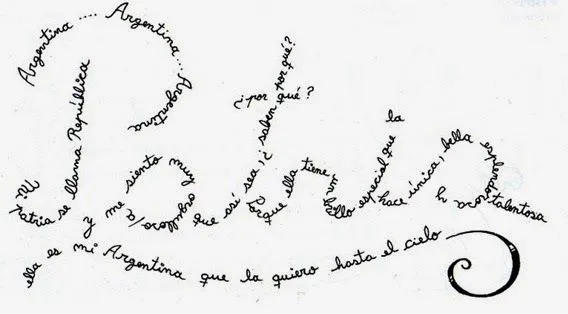 Mi Patria se llama República
Argentina .... Argentina.... Argentina
y me siento muy orgulloso/a que así sea ¿ saben por qué?
¿por qué?
Porque ella tiene un bello especial que la
hace única, bella esplendorosa y talentosa
ella es mi Argentina que la quiero hasta el cielo